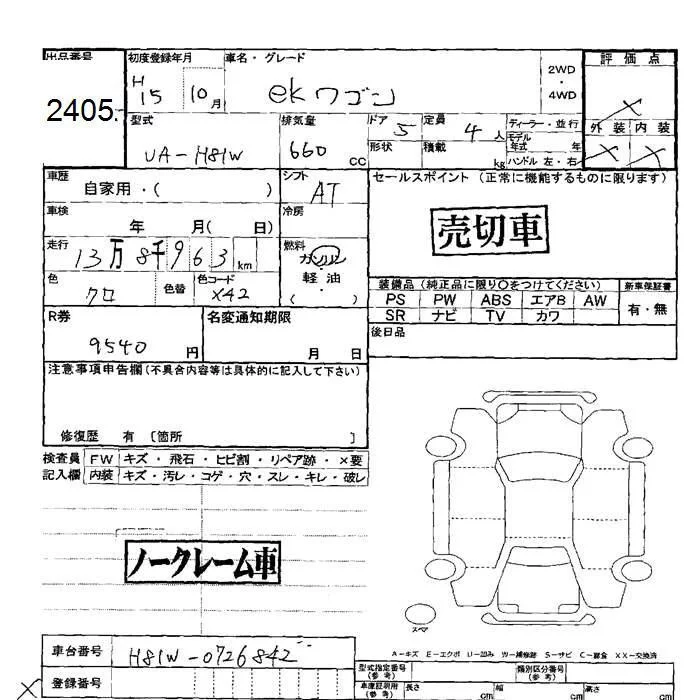 出品番号 初度登録年月 車名・グレード 評価点
2405. H 15 10月 ekワゴン 2WD・4WD X
型式 排気量 ドア 定員 ディーラー・並行 外装 内装
UA-H81W 660 cc 5 4人 モデル年式 年 X X
形状 積載 kg ハンドル 左・右
車歴 シフト セールスポイント (正常に機能するものに限ります)
自家用・( ) AT
車検 冷房 売切車
年 月( 日)
走行 燃料
13万8千963km ガソリン
軽油
色 色替 色コード ・
クロ X42 ( )
装備品 (純正品に限り〇をつけてください) 新車保証書
PS PW ABS エアB AW 有・無
SR ナビ TV カワ
R券 名変通知期限 後日品
9540 円 月 日
注意事項申告欄(不具合内容等は具体的に記入して下さい)
修復歴 有 〔箇所 〕
検査員 FW キズ・飛石・ヒビ割・リペア跡・×要
記入欄 内装 キズ・汚レ・コゲ・穴・スレ・キレ・破レ
ノークレーム車
スペア
A-キズ E-エクボ U-凹み W-補修跡 S-サビ C-腐食 XX-交換済
車台番号 H81W-0726842
登録番号
型式指定番号(参考) 類別区分番号(参考)
車庫証明用(参考) 長さ cm 幅 cm 高さ cm
X